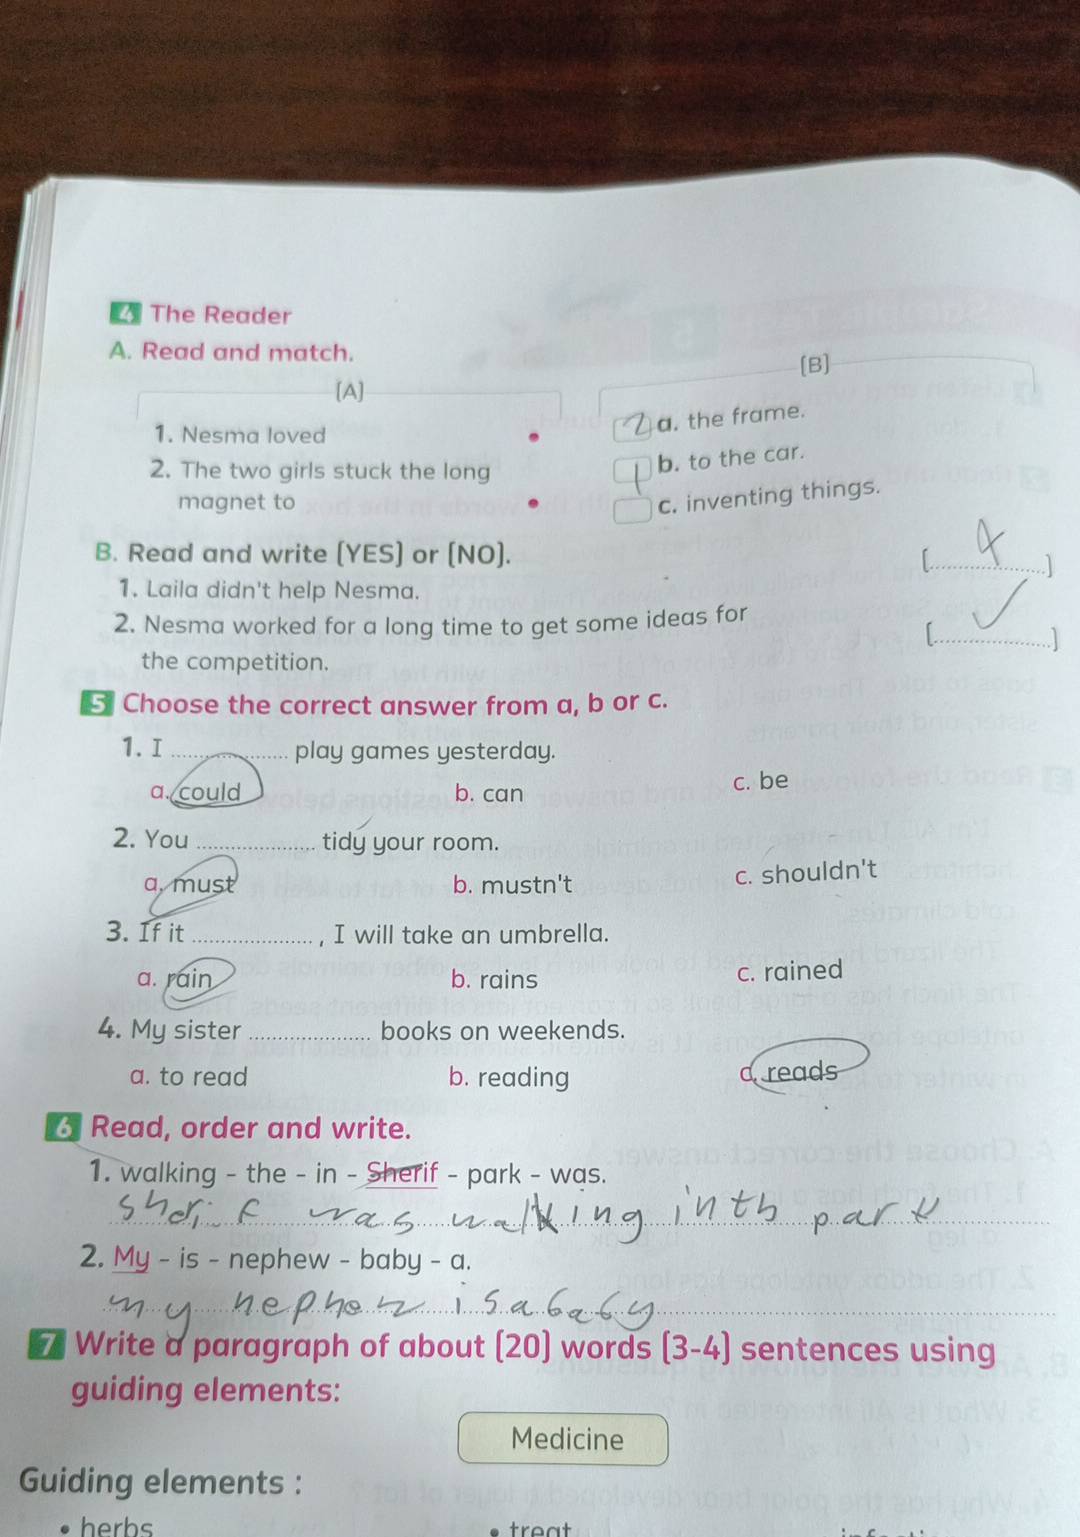 4 The Reader
A. Read and match.
[A] [B]
1. Nesma loved
2 a. the frame.
2. The two girls stuck the long
magnet to
1 b. to the car.
c. inventing things.
B. Read and write [YES] or [NO].
1. Laila didn't help Nesma. [..............]
2. Nesma worked for a long time to get some ideas for
the competition. [..............✓]
5 Choose the correct answer from a, b or c.
1. I .............. play games yesterday.
a. could b. can c. be
2. You .............. tidy your room.
a. must b. mustn't c. shouldn't
3. If it .............. , I will take an umbrella.
a. rain b. rains c. rained
4. My sister .............. books on weekends.
a. to read b. reading c. reads
6 Read, order and write.
1. walking - the - in - Sherif - park - was.
was walking in th park
2. My - is - nephew - baby - a.
my is a baby
7 Write a paragraph of about [20] words [3-4] sentences using
guiding elements:
Medicine
Guiding elements :
• herbs • treat